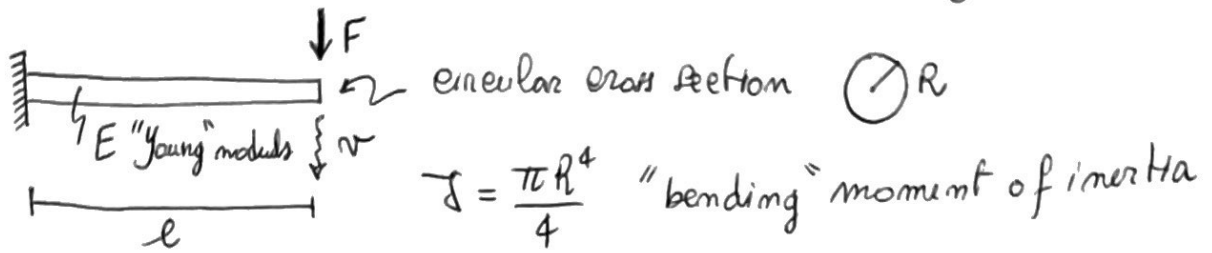 F
circular cross section R
E "Young" moduls v
J = πR⁴/4 "bending" moment of inertia
l